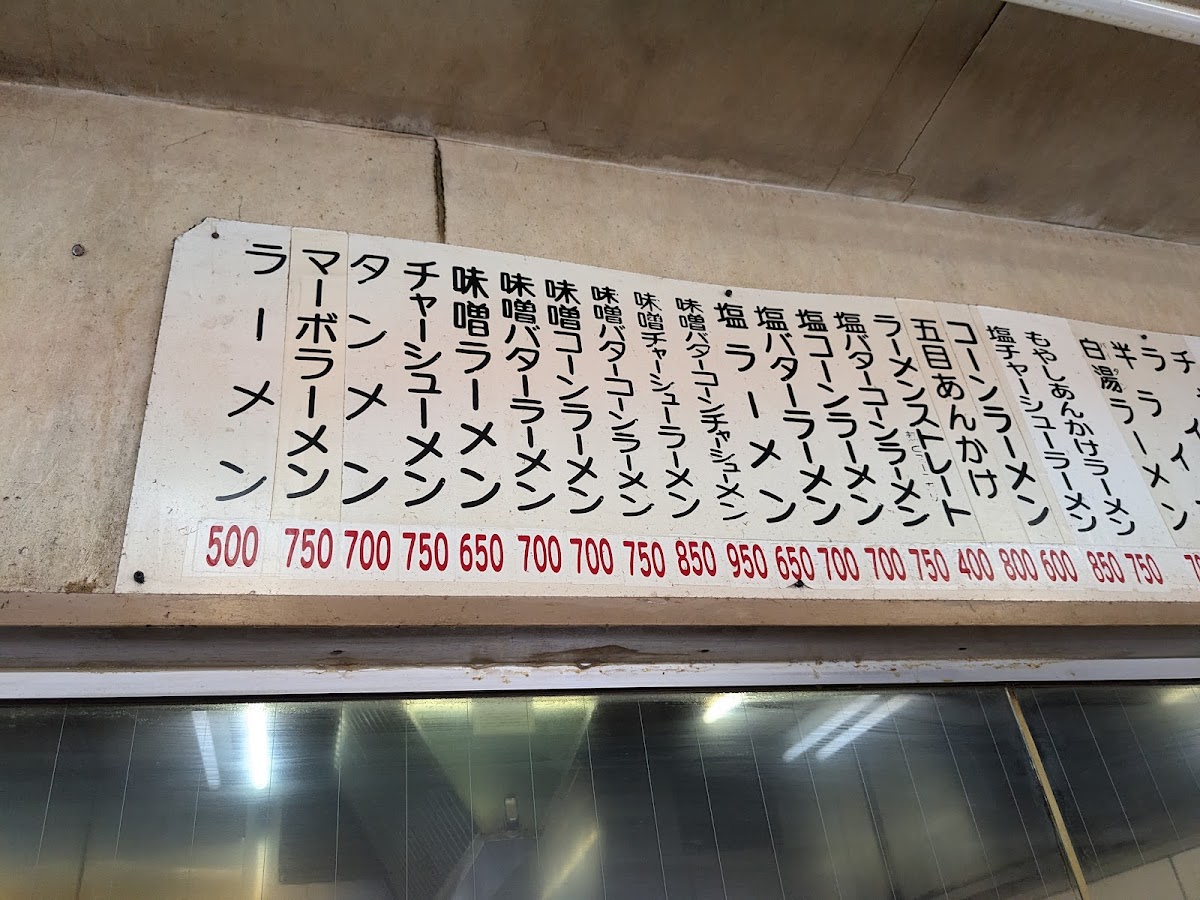 ラーメン
マーボラーメン
タンメン
チャーシューメン
味噌ラーメン
味噌バターラーメン
味噌コーンラーメン
味噌バターコーンラーメン
味噌チャーシューラーメン
味噌バターコーンチャーシューメン
塩ラーメン
塩バターラーメン
塩コーンラーメン
塩バターコーンラーメン
ラーメンストレート
五目あんかけ
コーンラーメン
塩チャーシューラーメン
もやしあんかけラーメン
白湯
半ラーメン
500 750 700 750 650 700 700 750 850 950 650 700 700 750 400 800 600 850 750